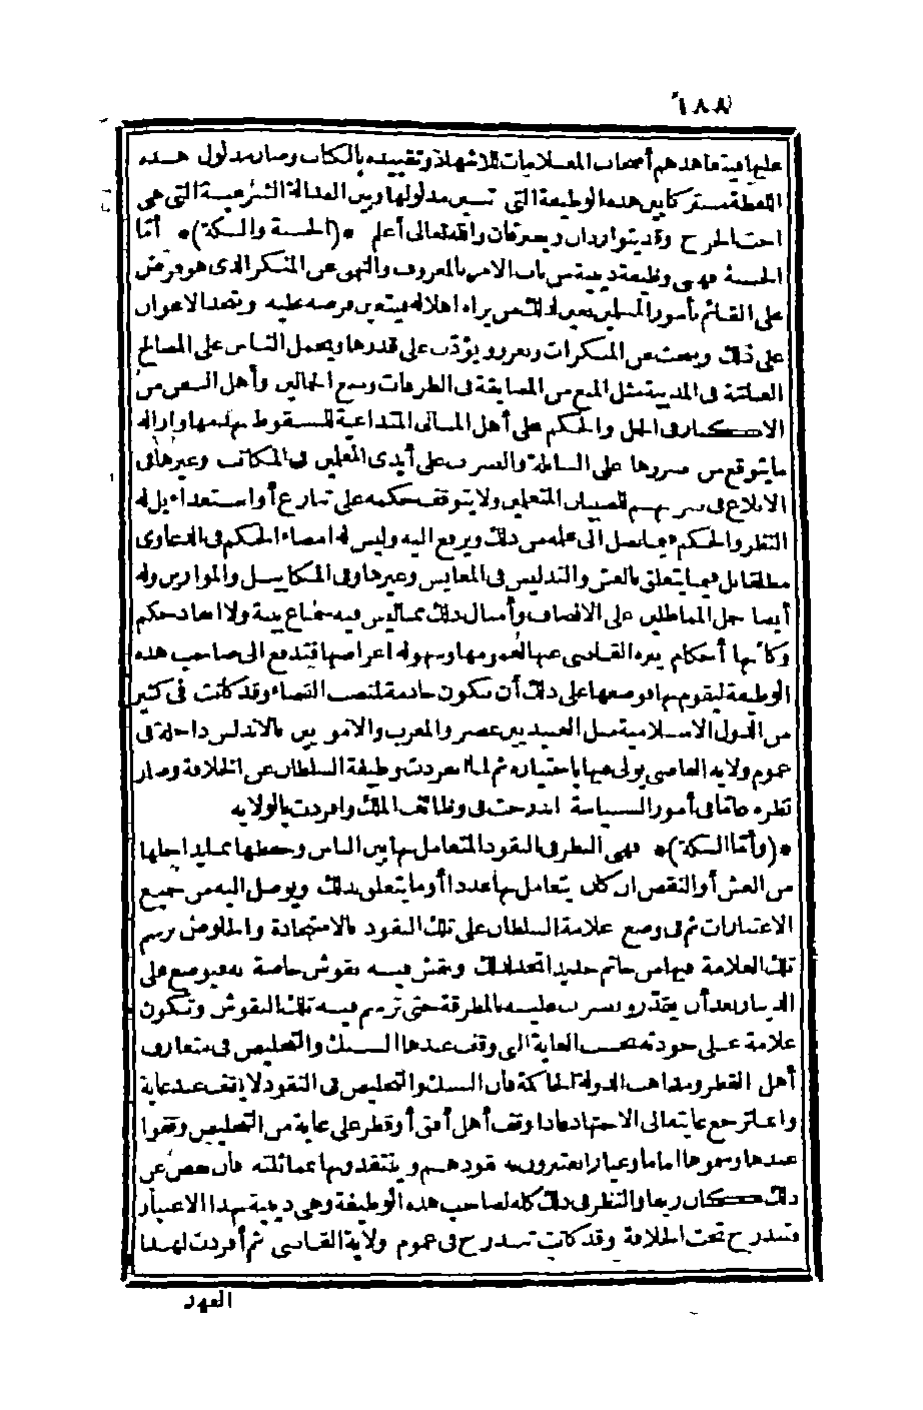 ١٨٨
عليها فيتعاهدهم أصحاب المعاملات للاشهاد وتقييده بالكتاب وصار مدلول هذه
اللفظة مشتركا بين هذه الوظيفة التي تبين مدلولها وبين العدالة الشرعية التي هي
أخت الجرح وقد يتواردان ويفترقان والله تعالى أعلم *(الحسبة والسكة)* أمّا
الحسبة فهي وظيفة دينية من باب الامر بالمعروف والنهي عن المنكر الذي هو فرض
على القائم بأمور المسلمين يعين لذلك من يراه أهلا له فيتعين فرضه عليه ويتخذ الاعوان
على ذلك ويبحث عن المنكرات ويعزر ويؤدّب على قدرها ويحمل الناس على المصالح
العامّة في المدينة مثل المنع من المضايقة في الطرقات ومنع الحمالين وأهل السفن من
الاكثار في الحمل والحكم على أهل المباني المتداعية للسقوط بهدمها وازالة
ما يتوقع من ضررها على السابلة والضرب على أيدي المعلمين في المكاتب وغيرها في
الابلاغ في ضربهم للصبيان المتعلمين ولا يتوقف حكمه على تنازع أو استعداء بل له
النظر والحكم فيما يصل الى علمه من ذلك ويرفع اليه وليس له امضاء الحكم في الدعاوى
مطلقا بل فيما يتعلق بالغش والتدليس في المعايش وغيرها وفي المكاييل والموازين وله
أيضا حمل المماطلين على الانصاف وأمثال ذلك مما ليس فيه سماع بينة ولا انفاذ حكم
وكأنها أحكام ينزه القاضي عنها لعمومها وسهولة اغراضها فتدفع الى صاحب هذه
الوظيفة ليقوم بها فوضعها على ذلك أن تكون خادمة لمنصب القضاء وقد كانت في كثير
من الدول الاسلامية مثل العبيديين بمصر والمغرب والامويين بالاندلس داخلة في
عموم ولاية القاضي يولى فيها باختياره ثم لما انفردت وظيفة السلطان عن الخلافة وصار
نظره عامّا في أمور السياسة اندرجت في وظائف الملك وافردت بالولاية
*(وأمّا السكة)* فهي النظر في النقود المتعامل بها بين الناس وحفظها مما يداخلها
من الغش أو النقص ان كان يتعامل بها عددا أو ما يتعلق بذلك ويوصل اليه من جميع
الاعتبارات ثم في وضع علامة السلطان على تلك النقود بالاستجادة والخلوص برسم
تلك العلامة فيها من خاتم حديد اتخذ لذلك ونقش فيه نقوش خاصة به فيوضع على
الدينار بعد أن يقدّر ويضرب عليه بالمطرقة حتى ترسم فيه تلك النقوش وتكون
علامة على جودته بحسب الغاية التي وقف عندها السبك والتخليص في متعارف
أهل القطر ومذاهب الدولة الحاكمة فان السبك والتخليص في النقود لا يقف عند غاية
وانما ترجع غايته الى الاجتهاد فاذا وقف أهل أفق أو قطر على غاية من التخليص وقفوا
عندها وسموها اماما وعيارا يعتبرون به نقودهم وينتقدونها بمماثلته فان نقص عن
ذلك كان زيفا والنظر في ذلك كله لصاحب هذه الوظيفة وهي دينية بهذا الاعتبار
فتندرج تحت الخلافة وقد كانت تندرج في عموم ولاية القاضي ثم أفردت لهذا
العهد